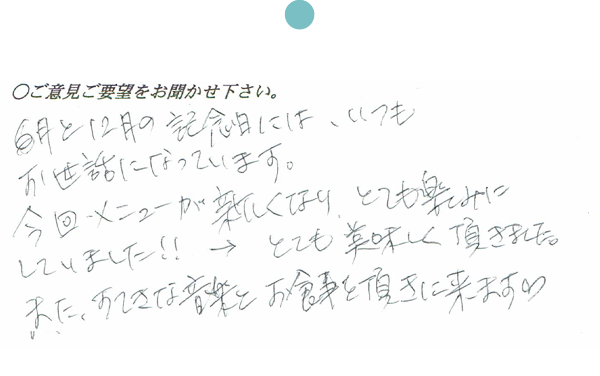 ○ご意見ご要望をお聞かせ下さい。
6月と12月の記念日には、いつも
お世話になっています。
今回メニューが新しくなり、とても楽しみに
していました!! → とても美味しく頂きました。
また、すてきな音楽とお食事を頂きに来ます♡